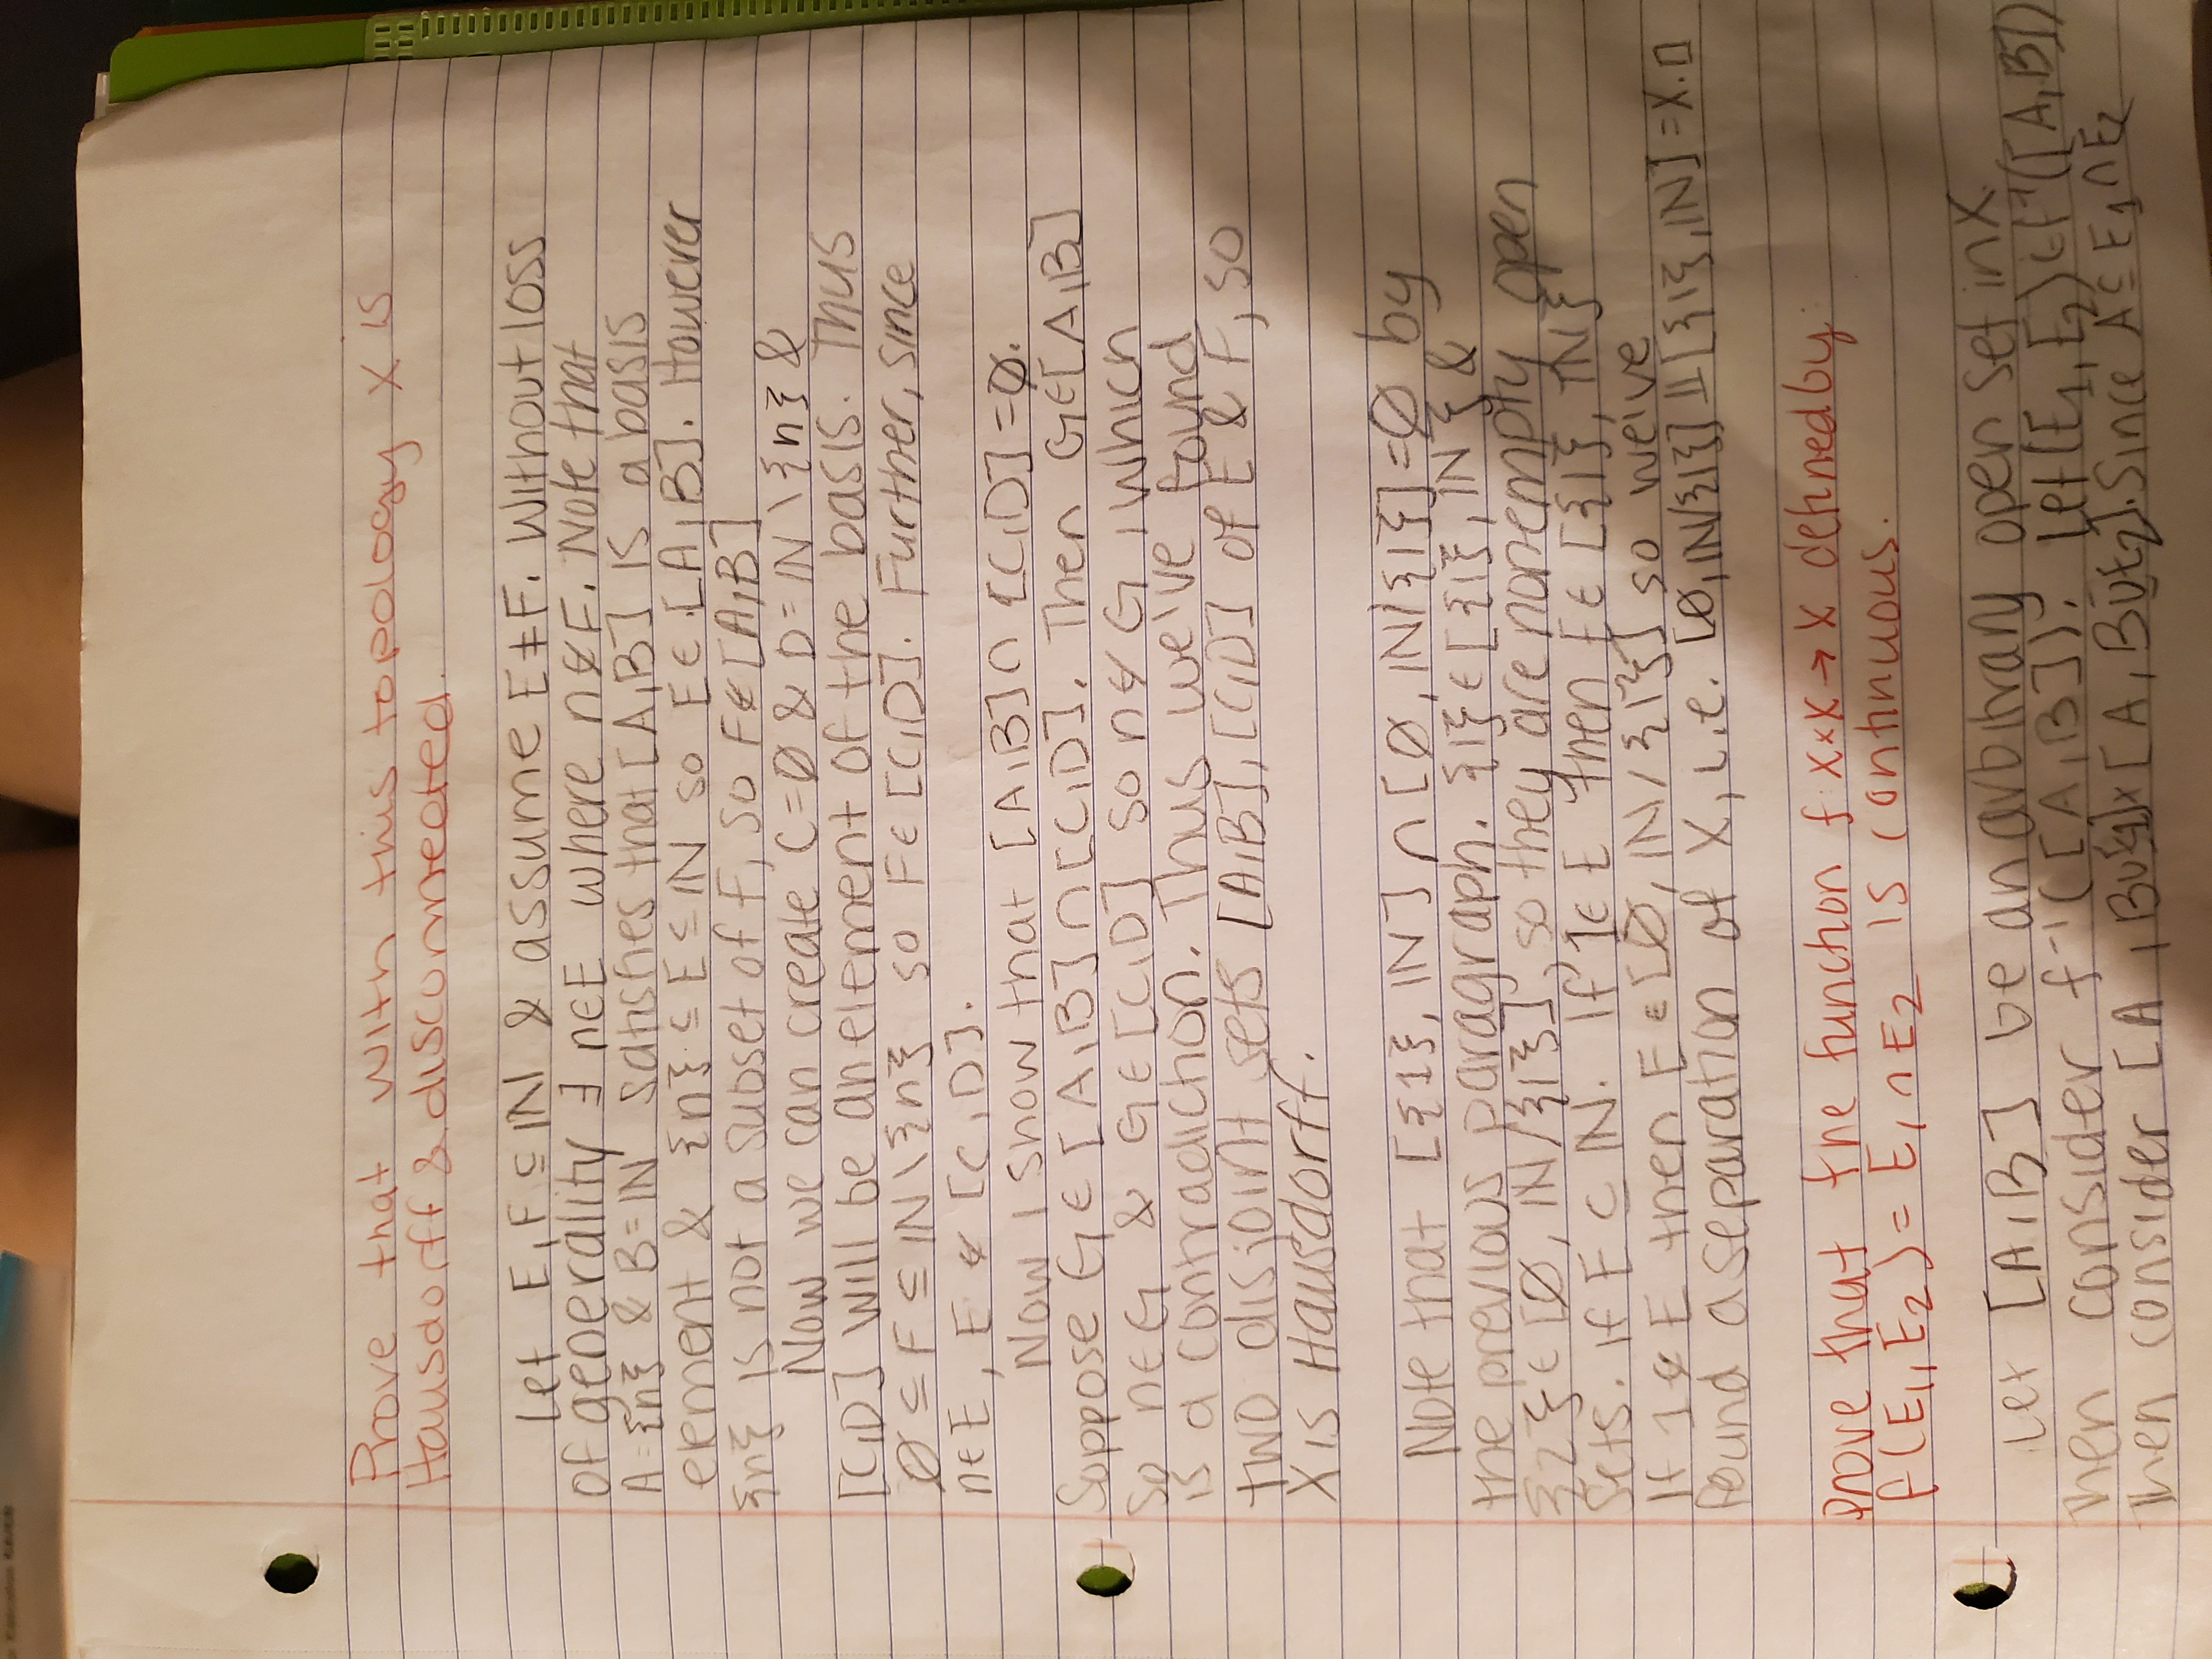 Prove that with this topology X is
Hausdorff & disconnected.
Let E,F ⊆ ℕ & assume E ≠ F. Without loss
of generality ∃ n∈E where n∉F. Note that
A={n} & B=ℕ satisfies that [A,B] is a basis
element & {n} ⊆ E ⊆ ℕ so E∈[A,B]. However
{n} is not a subset of F, so F∉[A,B]
Now we can create C=∅ & D=ℕ\{n} &
[C,D] will be an element of the basis. Thus
∅ ⊆ F ⊆ ℕ\{n} so F∈[C,D]. Further, since
n∈E, E∉[C,D].
Now I show that [A,B]∩[C,D]=∅.
Suppose G∈[A,B]∩[C,D]. Then G∈[A,B]
so n∈G & G∈[C,D] so n∉G, which
is a contradiction. Thus we've found
two disjoint sets [A,B],[C,D] of E & F, so
X is Hausdorff.
Note that [{1},ℕ]∩[∅,ℕ\{1}]=∅ by
the previous paragraph. {1}∈[{1},ℕ] &
{2}∈[∅,ℕ/{1}] so they are nonempty open
sets. If E⊂ℕ. If 1∈E then E∈[{1},ℕ]
If 1∉E then E∈[∅,ℕ/{1}] so we've
found a separation of X, i.e. [∅,ℕ/{1}]⊔[{1},ℕ]=X.□
Prove that the function f: X×X→X defined by:
f(E₁,E₂)=E₁∩E₂ is continuous.
Let [A,B] be an arbitrary open set in X.
Then consider f⁻¹([A,B]). Let (E₁,E₂)∈f⁻¹([A,B])
Then consider [A, B∪E₁]×[A,B∪E₂]. Since A⊆E₁∩E₂